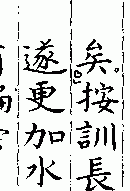 矣按訓長
遂更加水